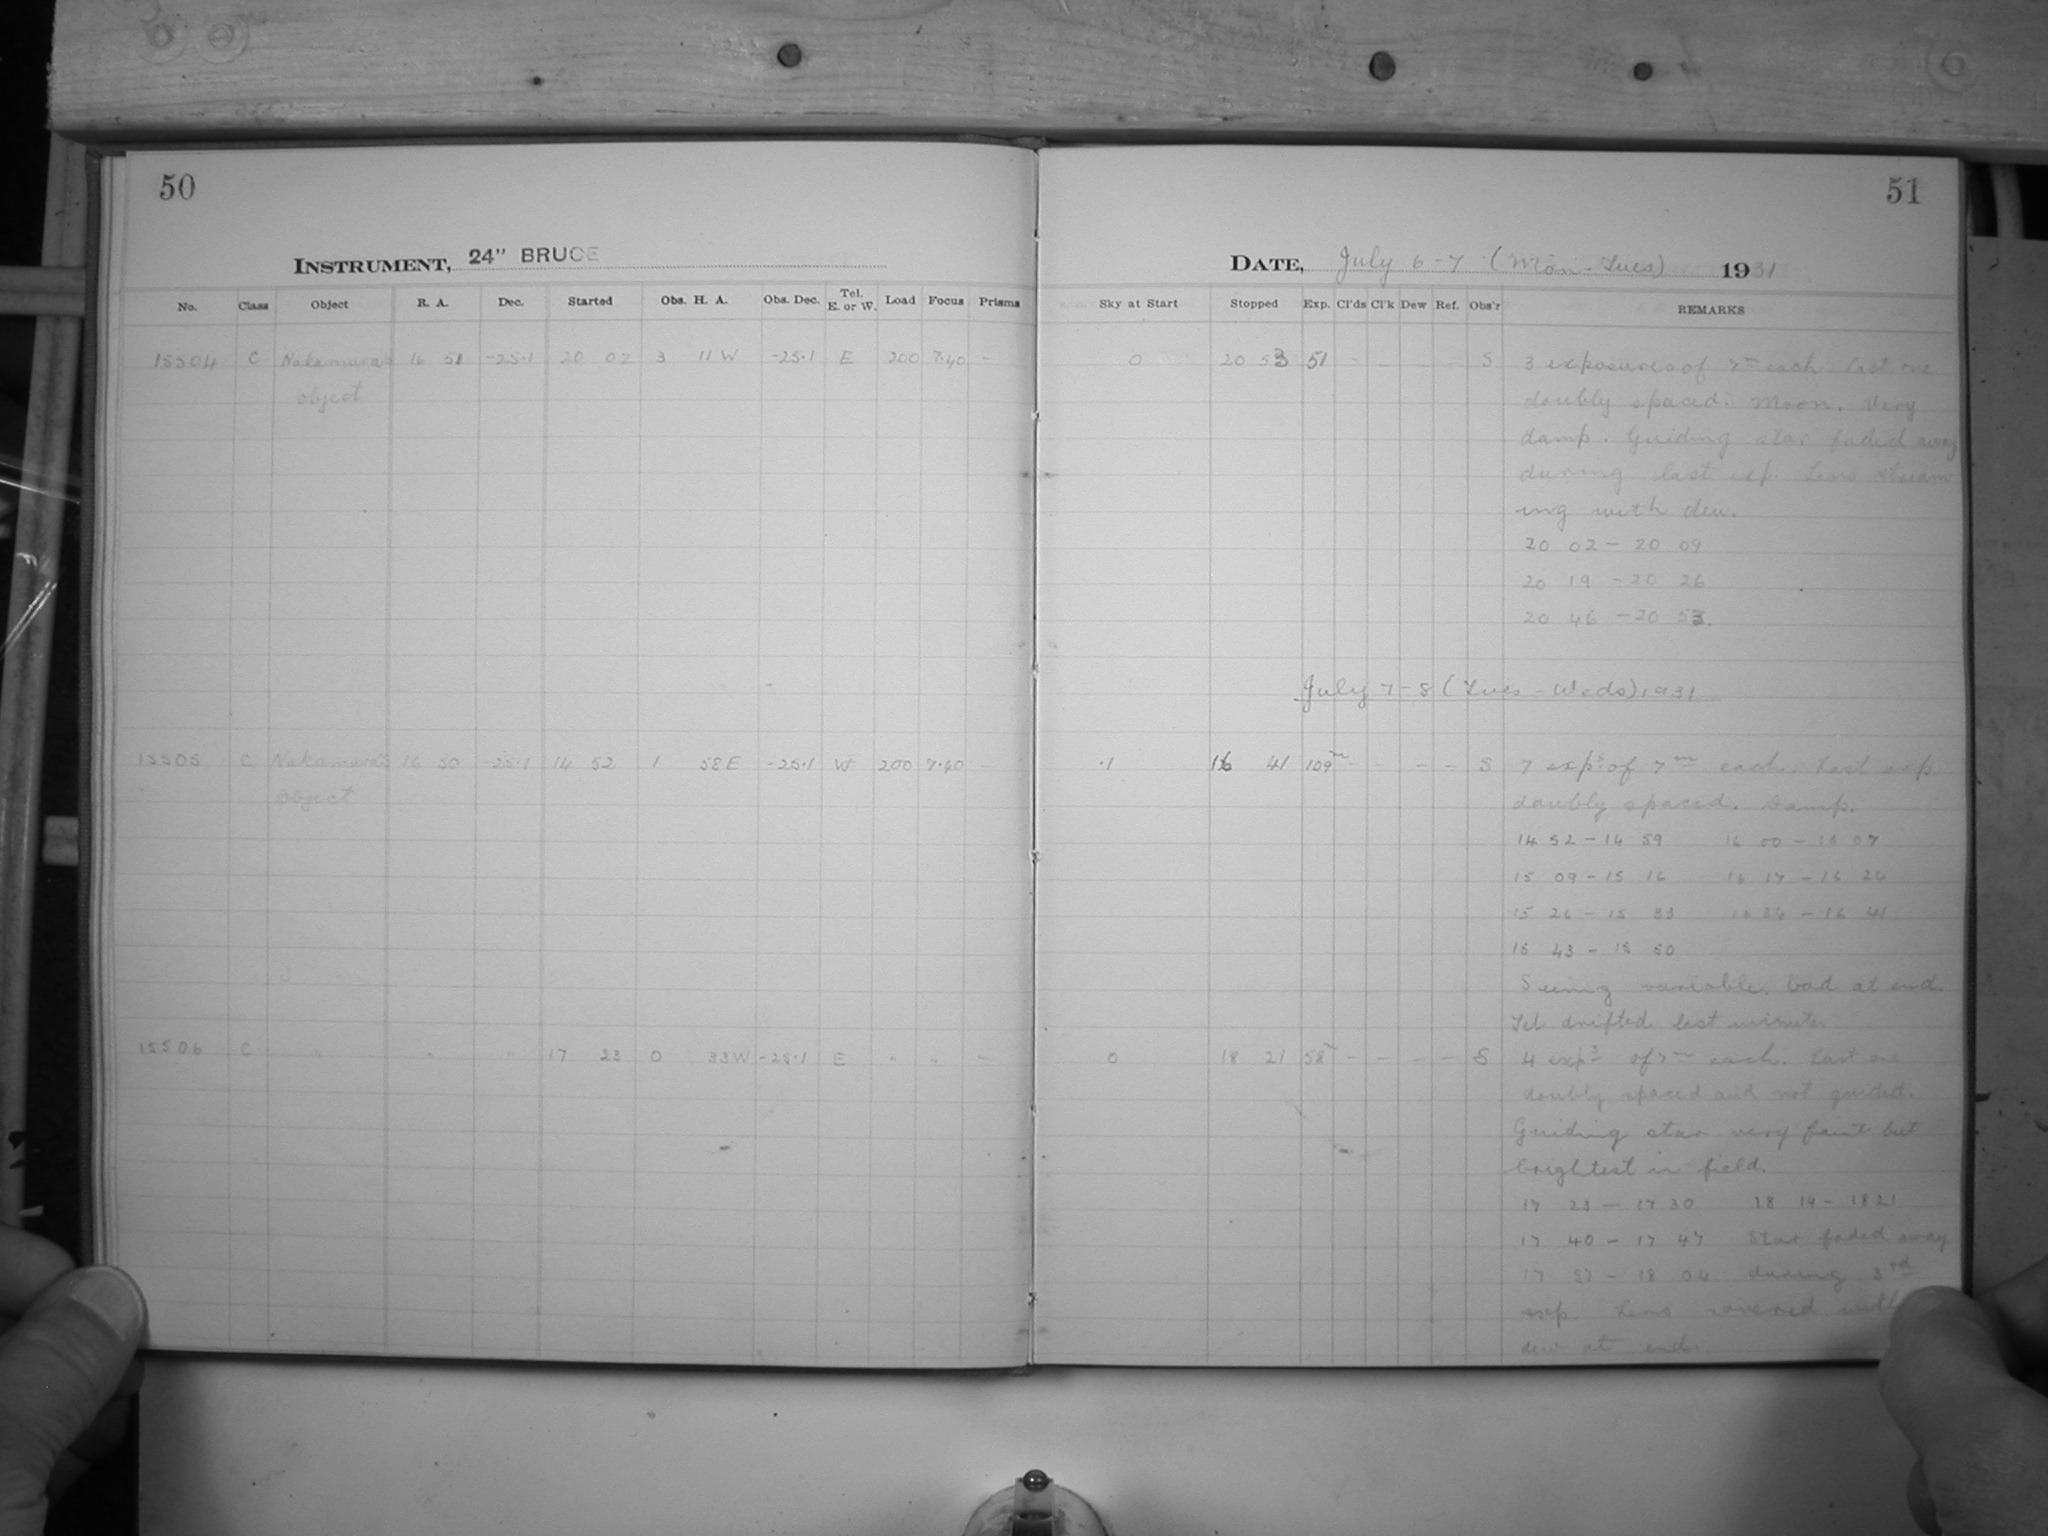 50
INSTRUMENT, 24" BRUCE
No. Class Object R. A. Dec. Started Obs. H. A. Obs. Dec. Tel. E. or W. Load Focus Prisms
15504 C Nakamura's 16 51 -25.1 20 02 3 11 W -25.1 E 200 7.40 -
object
15505 C Nakamura's 16 50 -25.1 14 52 1 58 E -25.1 W 200 7.40 -
object
15506 C " " " 17 23 0 33 W -25.1 E " " -
51
DATE, July 6-7 (Mon-Tues) 1931
Sky at Start Stopped Exp. Cl'ds Cl'k Dew Ref. Obs'r REMARKS
0 20 53 51 - - - - S 3 exposures of 7m each last one
doubly spaced. Moon. Very
damp. Guiding star faded away
during last exp. Lens stream
ing with dew.
20 02 - 20 09
20 19 - 20 26
20 46 - 20 53.
July 7-8 (Tues-Weds) 1931
.1 16 41 109m - - - - S 7 exps of 7m each. Last exp.
doubly spaced. Damp.
14 52 - 14 59 16 00 - 16 07
15 09 - 15 16 16 17 - 16 24
15 26 - 15 33 16 34 - 16 41
15 43 - 15 50
Seeing variable, bad at end.
Tel drifted last minute.
0 18 21 58m - - - - S 4 exps of 7m each. Last one
doubly spaced and not guided.
Guiding star very faint but
brightest in field.
17 23 - 17 30 18 14 - 18 21
17 40 - 17 47 Star faded away
17 57 - 18 04 during 3rd
exp. Lens covered with
dew at end.